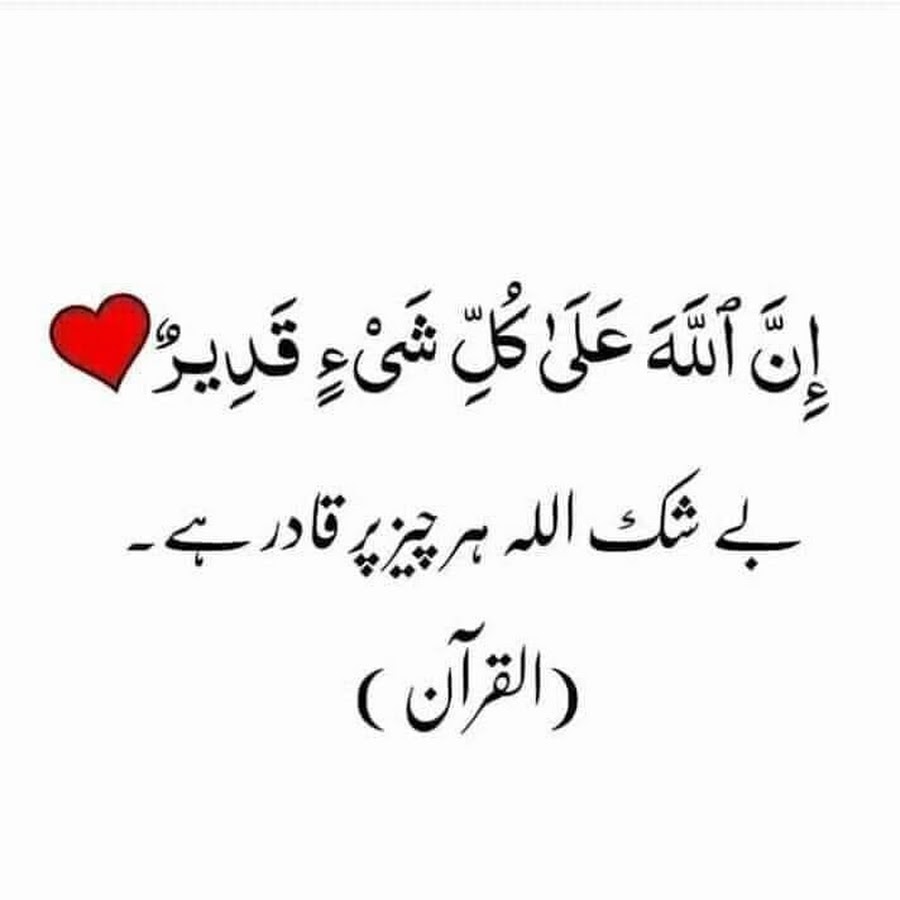 إِنَّ ٱللَّهَ عَلَىٰ كُلِّ شَىْءٍ قَدِيرٌ
بے شک اللہ ہر چیز پر قادر ہے۔
(القرآن)